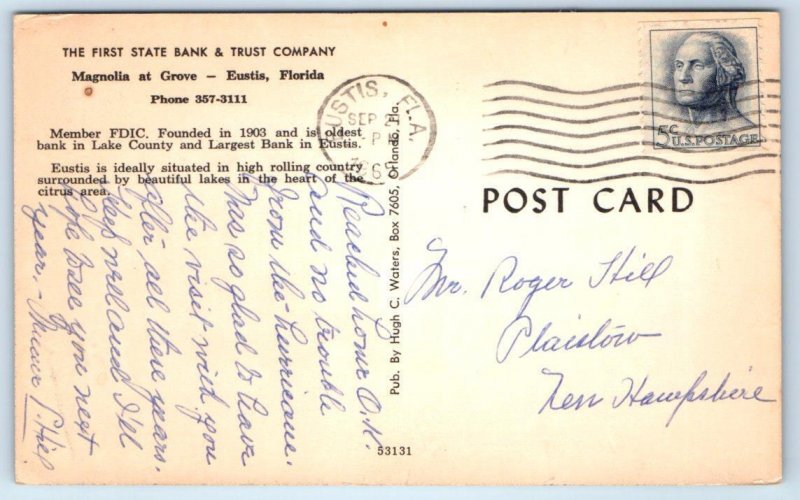 THE FIRST STATE BANK & TRUST COMPANY
Magnolia at Grove — Eustis, Florida
Phone 357-3111
Member FDIC. Founded in 1903 and is oldest
bank in Lake County and Largest Bank in Eustis.
Eustis is ideally situated in high rolling country
surrounded by beautiful lakes in the heart of the
citrus area.
Reached home O.K.
and no trouble
from the hurricane.
Was so glad to have
the visit with you
after all these years.
Keep well and I'll
hope to see you next
year. —
Hill
Pub. By Hugh C. Waters, Box 7605, Orlando, Fla.
53131
EUSTIS, FLA.
SEP
P
5¢
U.S. POSTAGE
POST CARD
Mr. Roger Hill
Plaistow
New Hampshire